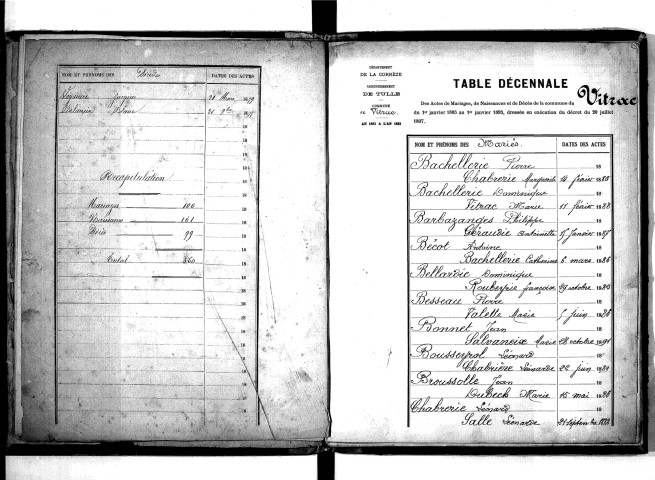 NOM ET PRÉNOMS DES Décédés DATES DES ACTES
Récapitulation
Mariages 100
Naissances 161
Décès 99
Total 360
DÉPARTEMENT
DE LA CORRÈZE
ARRONDISSEMENT
DE TULLE
COMMUNE
de Vitrac
TABLE DÉCENNALE
Des Actes de Mariages, de Naissances et de Décès de la commune de Vitrac
du 1er janvier 1883 au 1er janvier 1893, dressée en exécution du décret du 20 juillet
1807.
NOM ET PRÉNOMS DES Mariés. DATES DES ACTES
Bachellerie Pierre 18
Chabrerie Marguerite février 188
Bachellerie Dominique 18
Vitrac Marie 11 février 1888
Barbazanges Philippe 18
Géraudie Antoinette janvier 1887
Bécot Antoine 18
Bachellerie Catherine 6 mars 1886
Bellardie Dominique 18
Rouberpie françoise 29 octobre 1890
Besseau Pierre 18
Valette Marie juin 18
Bonnet Jean 18
Salvaneix Marie 28 octobre 1891
Bousseyrol Léonard 18
Chabrière Léonarde 22 juin 1889
Broussolle Jean 18
Dubech Marie 15 mai 1886
Chabrerie Léonard 18
Salle Léonarde 21 septembre